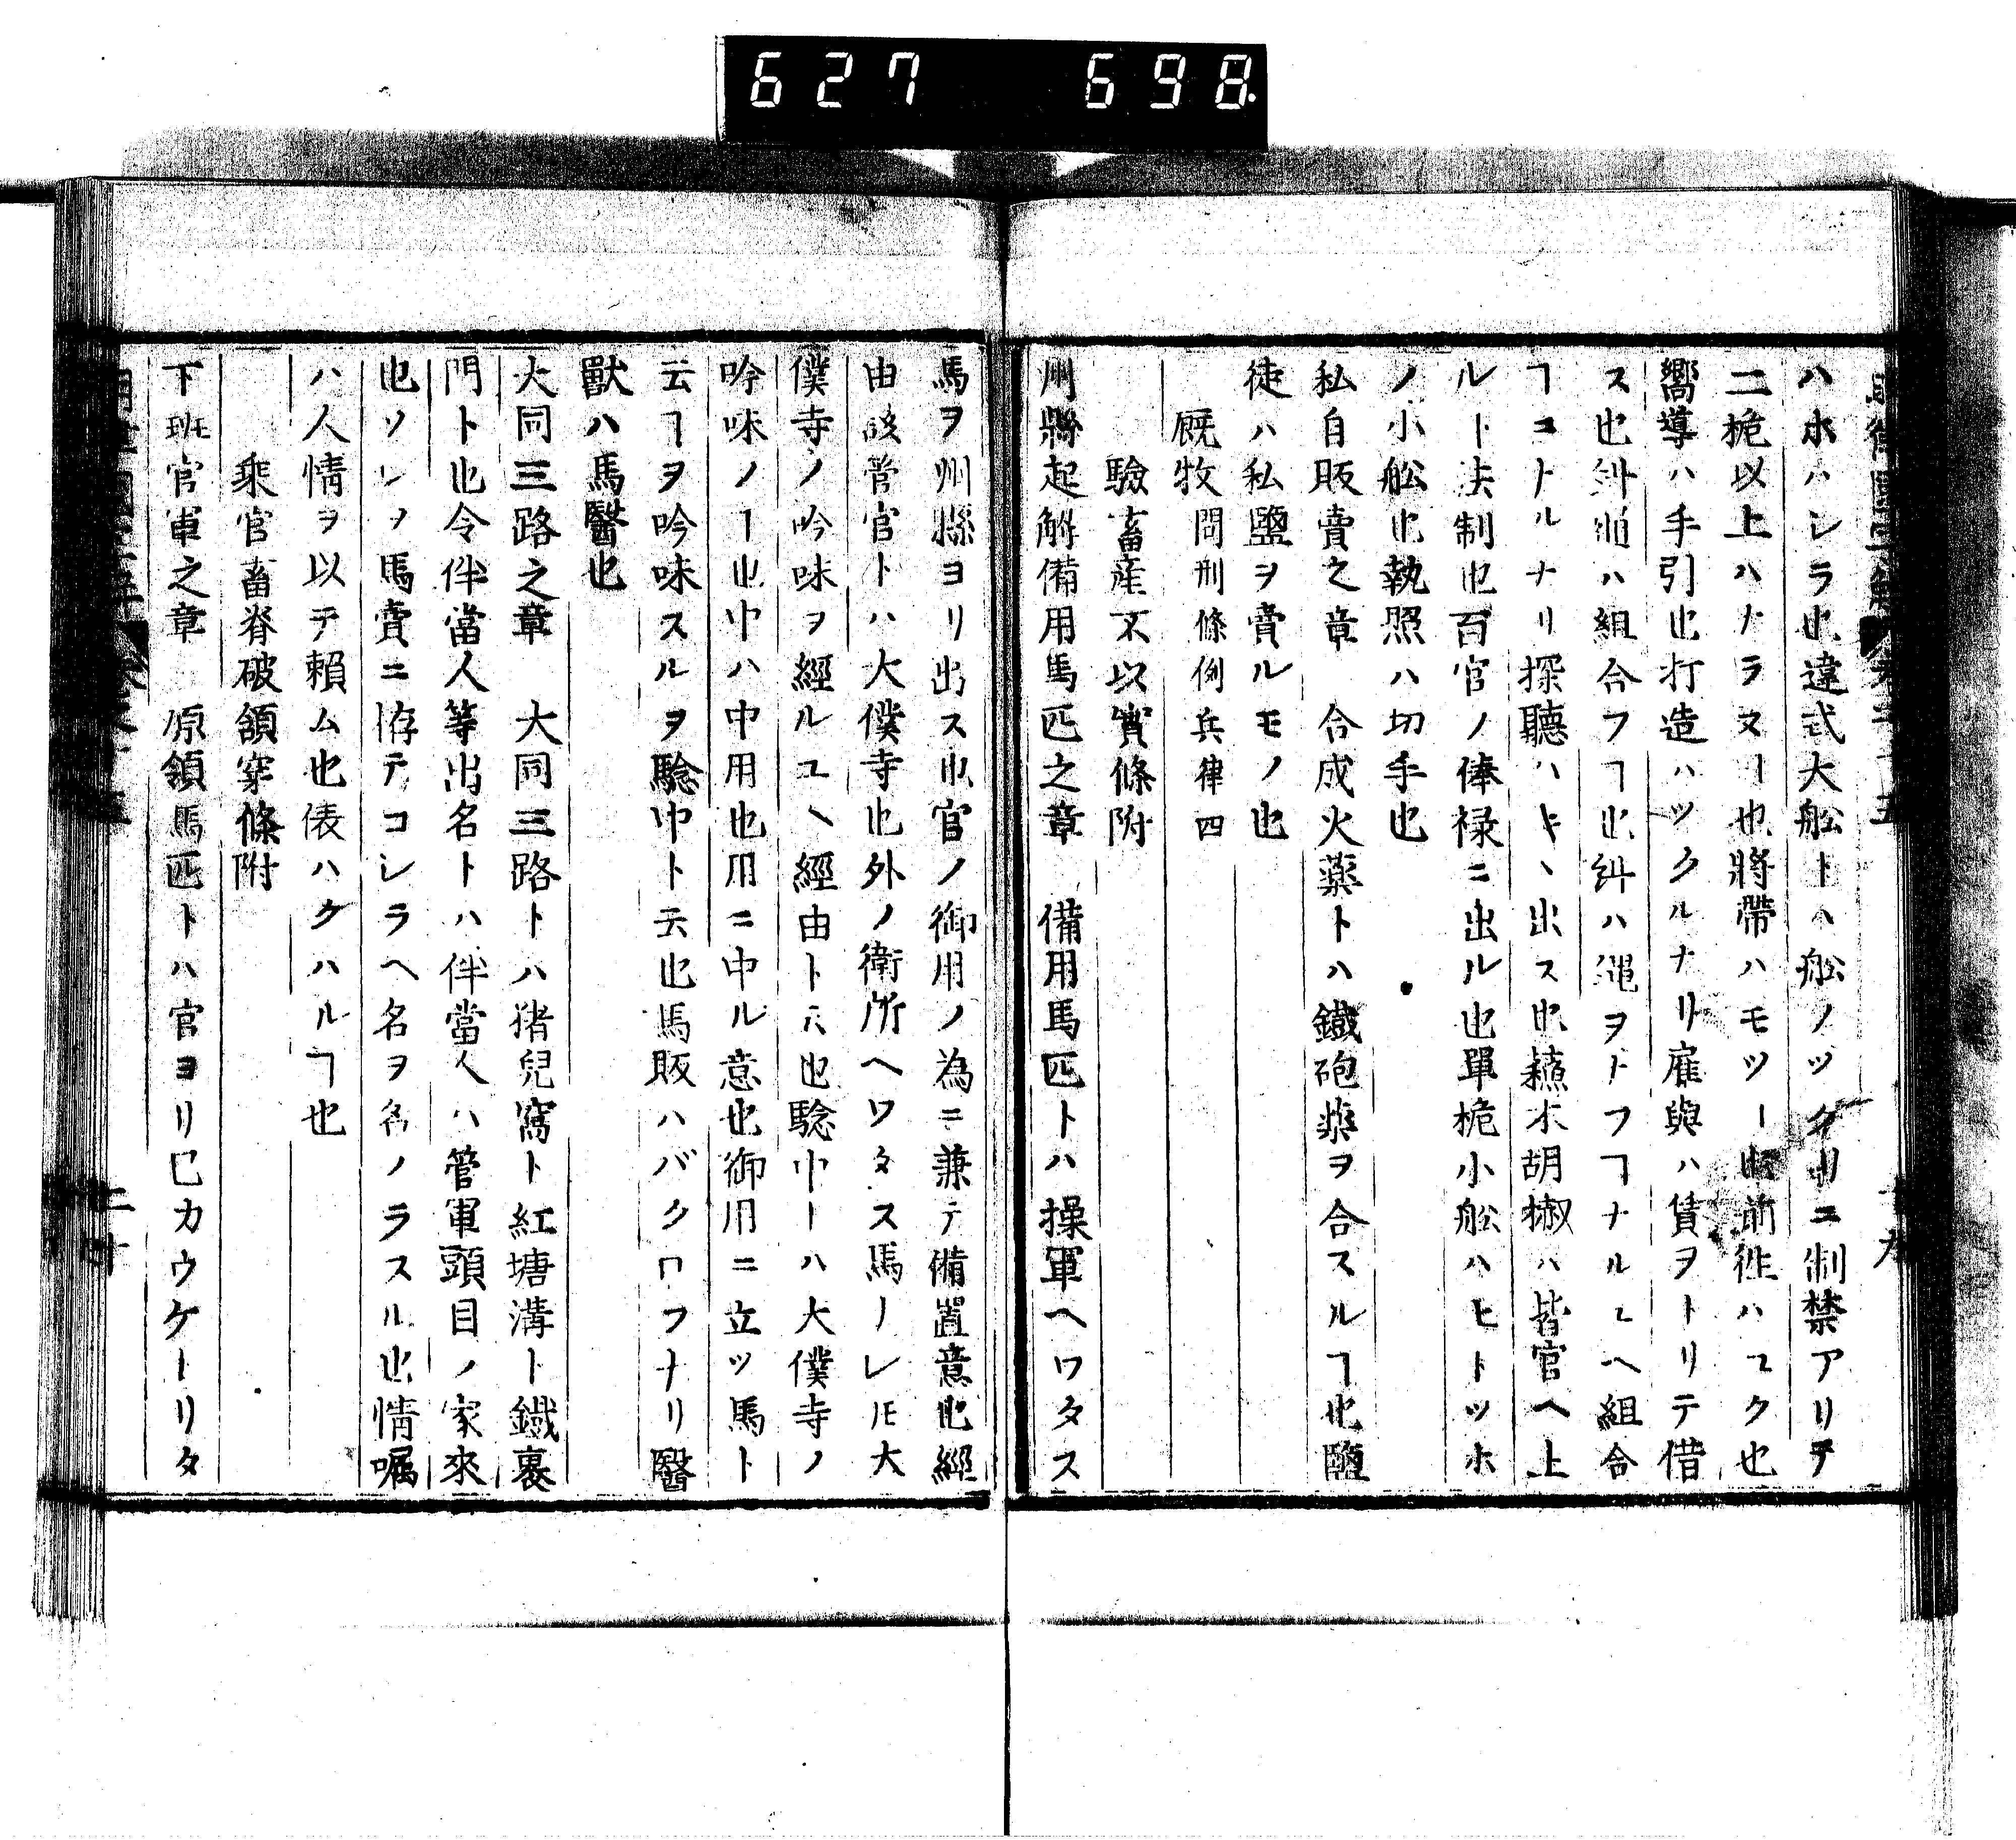 627 698.
ハホハシラ也違式大舩トハ舩ノツクリニ制禁アリテ
二桅以上ハナラヌヿ也將帶ハモツヿ也前徃ハユク也
嚮導ハ手引也打造ハツクルナリ雇與ハ賃ヲトリテ借
ス也糾ハ組合フヿ也糾ハ繩ヲトフヿナルユヘ組合
ヿコトルナリ探聽ハキヽ出ス也蘓木胡椒ハ皆官ヘ上
ルト法制也百官ノ俸禄ニ出ル也單桅小舩ハヒトツホ
ノ小舩也執照ハ切手也
私自販賣之章 合成火藥トハ鐵砲藥ヲ合スルヿ也鹽
徒ハ私鹽ヲ賣ルモノ也
厩牧 問刑條例兵律四
驗畜産不以實條附
州縣起解備用馬匹之章 備用馬匹トハ操軍ヘワタス
馬ヲ州縣ヨリ出ス也官ノ御用ノ為ニ兼テ備置意也經
由該管官トハ大僕寺也外ノ衛所ヘワタス馬ノレ𪜈大
僕寺ノ吟味ヲ經ルユヽ經由ト云也驗中ーハ大僕寺ノ
吟味ノヿ也中ハ中用也用ニ中ル意也御用ニ立ツ馬ト
云ヿヲ吟味スルヲ驗中ト云也馬販ハバクロフナリ醫
獸ハ馬醫也
大同三路之章 大同三路トハ猪兒窩ト紅塘溝ト鐵裹
門ト也令伴當人等出名トハ伴當人ハ管軍頭目ノ家來
也ソレヲ馬賣ニ拵テコシラヘ名ヲ名ノラスル也情囑
ハ人情ヲ以テ頼ム也俵ハクハルヿ也
乘官畜脊破領穿條附
下班官軍之章 原領馬匹トハ官ヨリ已カウケトリタ